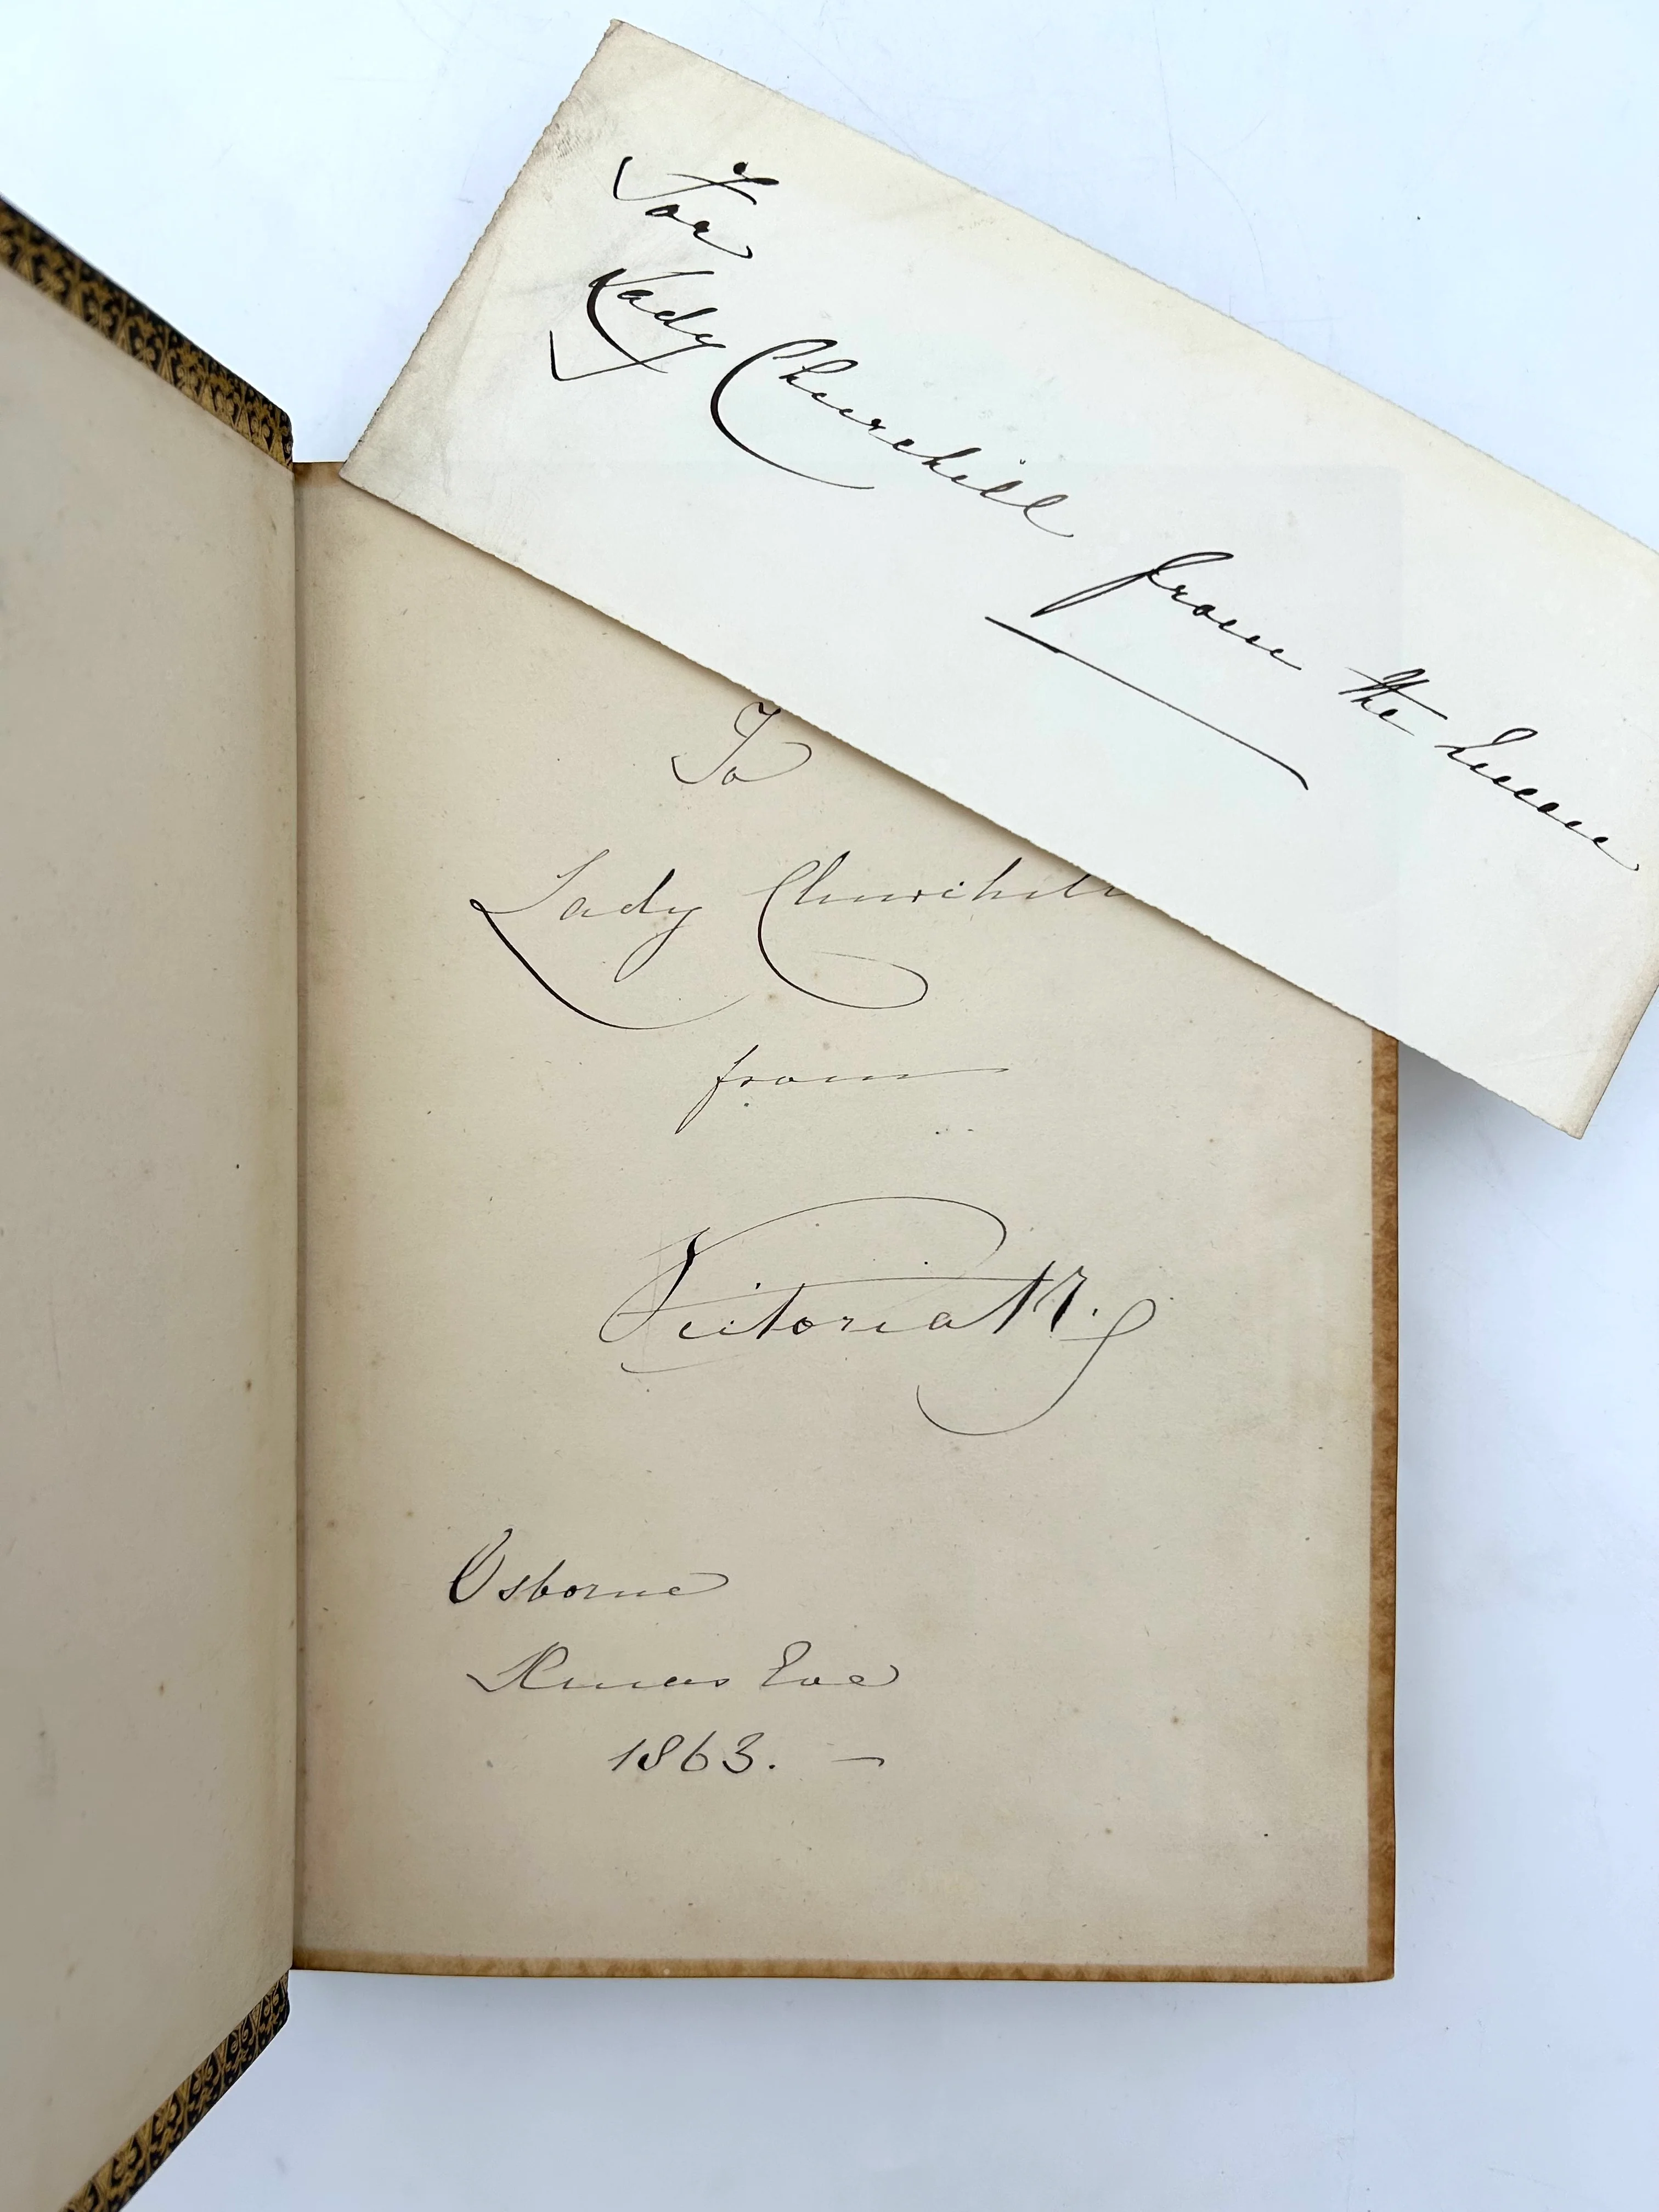 For
Lady Churchill from the Queen
To
Lady Churchill
from
Victoria R.
Osborne
Xmas Eve
1863. —